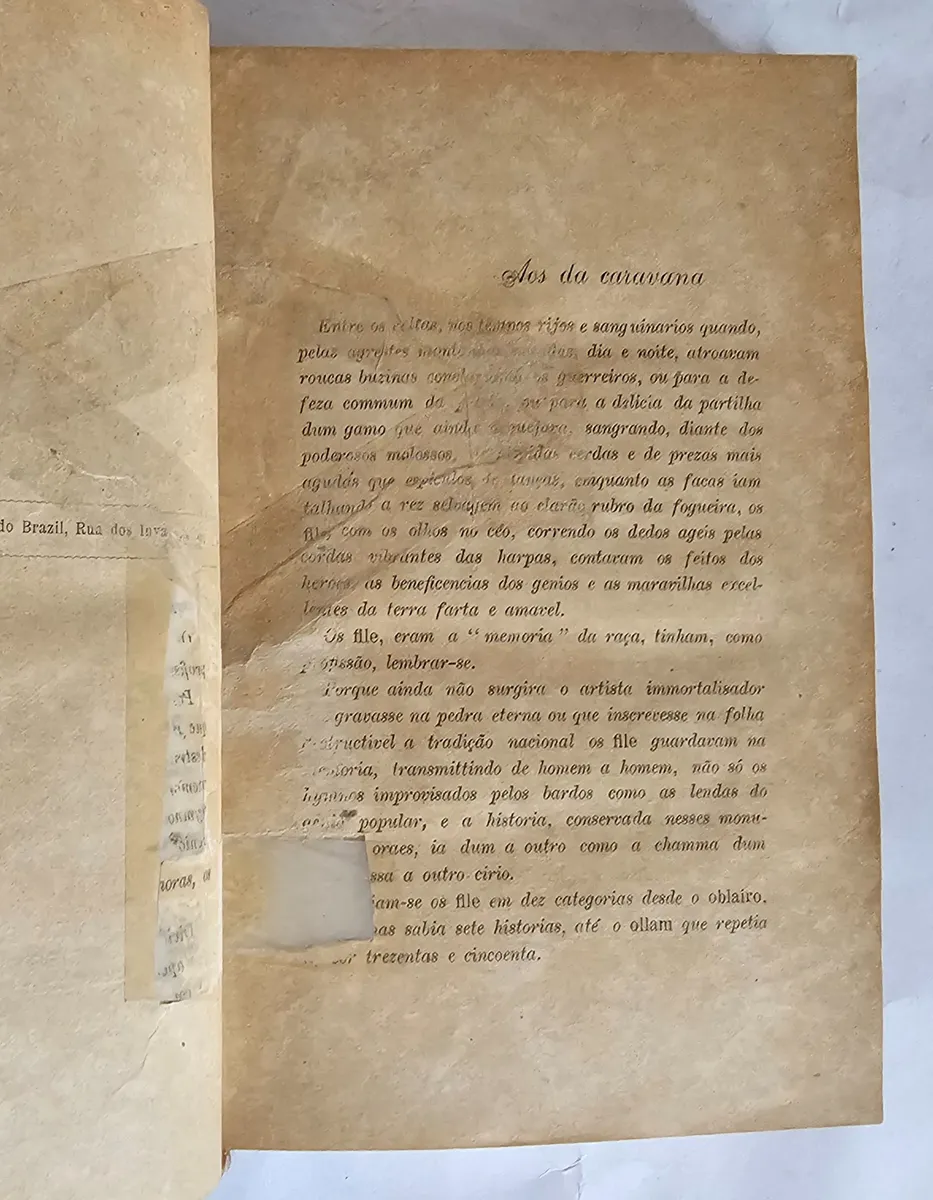 do Brazil, Rua dos Inva
Aos da caravana
Entre os celtas, nos tempos rijos e sanguinarios quando,
pelas agrestes dia e noite, atroavam
roucas buzinas os guerreiros, ou para a de-
feza commum da ou para a delicia da partilha
dum gamo que ainda sangrando, diante dos
poderosos molossos, cerdas e de prezas mais
agudas que espiculos de lanças, emquanto as facas iam
talhando a rez selvagem ao clarão rubro da fogueira, os
file, com os olhos no céo, correndo os dedos ageis pelas
cordas vibrantes das harpas, contavam os feitos dos
heroes, as beneficencias dos genios e as maravilhas excel-
lentes da terra farta e amavel.
Os file, eram a "memoria" da raça, tinham, como
lembrar-se.
Porque ainda não surgira o artista immortalisador
gravasse na pedra eterna ou que inscrevesse na folha
a tradição nacional os file guardavam na
memoria, transmittindo de homem a homem, não só os
hymnos improvisados pelos bardos como as lendas do
genio popular, e a historia, conservada nesses monu-
oraes, ia dum a outro como a chamma dum
ssa a outro cirio.
iam-se os file em dez categorias desde o oblairo,
nas sabia sete historias, até o ollam que repetia
trezentas e cincoenta.